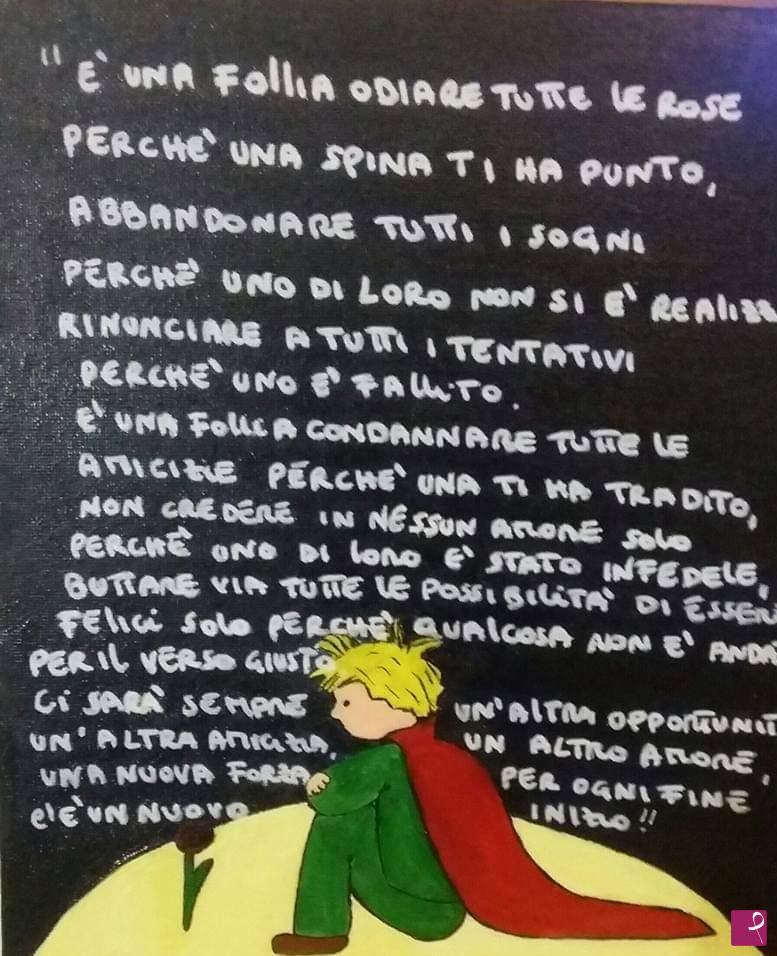 "È UNA FOLLIA ODIARE TUTTE LE ROSE
PERCHE' UNA SPINA TI HA PUNTO,
ABBANDONARE TUTTI I SOGNI
PERCHE' UNO DI LORO NON SI E' REALIZZ
RINUNCIARE A TUTTI I TENTATIVI
PERCHE' UNO E' FALLITO.
E' UNA FOLLIA CONDANNARE TUTTE LE
AMICIZIE PERCHE' UNA TI HA TRADITO,
NON CREDERE IN NESSUN AMORE SOLO
PERCHÈ UNO DI LORO E' STATO INFEDELE,
BUTTARE VIA TUTTE LE POSSIBILITA' DI ESSER
FELICI SOLO PERCHE' QUALCOSA NON E' ANDA
PER IL VERSO GIUSTO
CI SARÀ SEMPRE UN'ALTRA OPPORTUNIT
UN'ALTRA AMICIZIA, UN ALTRO AMORE,
UNA NUOVA FORZA PER OGNI FINE
C'È UN NUOVO INIZIO!!